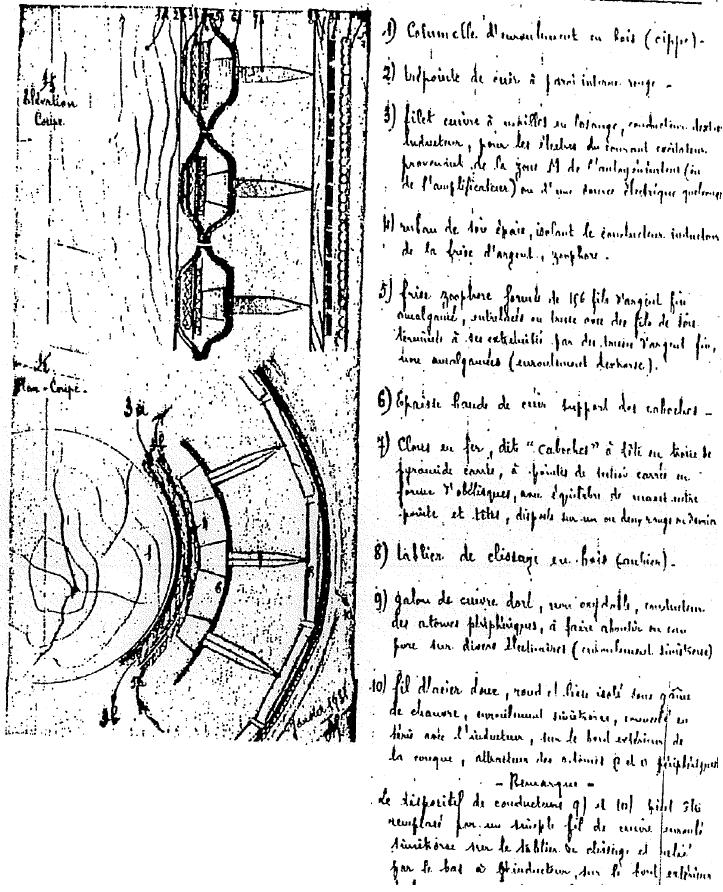 Élévation
Coupe.
Plan-Coupe.
1) Columelle d'enroulement en bois (cippe).
2) trépointe de cuir à paroi interne rouge.
3) filet cuivre à mailles en losange, conducteur dextre
inducteur, pour les électros du courant excitateur
provenant de la zone M de l'antagonisteur (ou
de l'amplificateur) ou d'une source électrique quelconque
4) ruban de soie épais, isolant le conducteur inducteur
de la frise d'argent, zoophore.
5) frise zoophore formée de 156 fils d'argent fin
amalgamé, entrelacés ou tissés avec des fils de soie
terminés à ses extrémités par des tresses d'argent fin,
une amalgamées (enroulement dextrorse).
6) Epaisse bande de cuir support des caboches
7) Clous en fer, dits "caboches" à tête en tronc de
pyramide carrée, à pointes de section carrée en
forme d'obélisques, avec équilibre de masse entre
pointe et têtes, disposés sur un ou deux rangs
8) tablier de clissage en bois (aubier).
9) galon de cuivre doré, non oxydable, conducteur
des atomes périphériques, à faire aboutir en eau
pure sur divers électuaires (enroulement sinistrorse)
10) fil d'acier doux, rond et lisse isolé sous gaine
de chanvre, enroulement sinistrorse, en
série avec l'inducteur, sur le bout extérieur de
la conque, attracteur des atomes périphériques
- Remarque -
Le dispositif de conducteurs 9) et 10) peut être
remplacé par un simple fil de cuivre enroulé
sinistrorse sur le tablier de clissage et relié
par le bas à l'inducteur, sur le bout extérieur
1
3
6
8